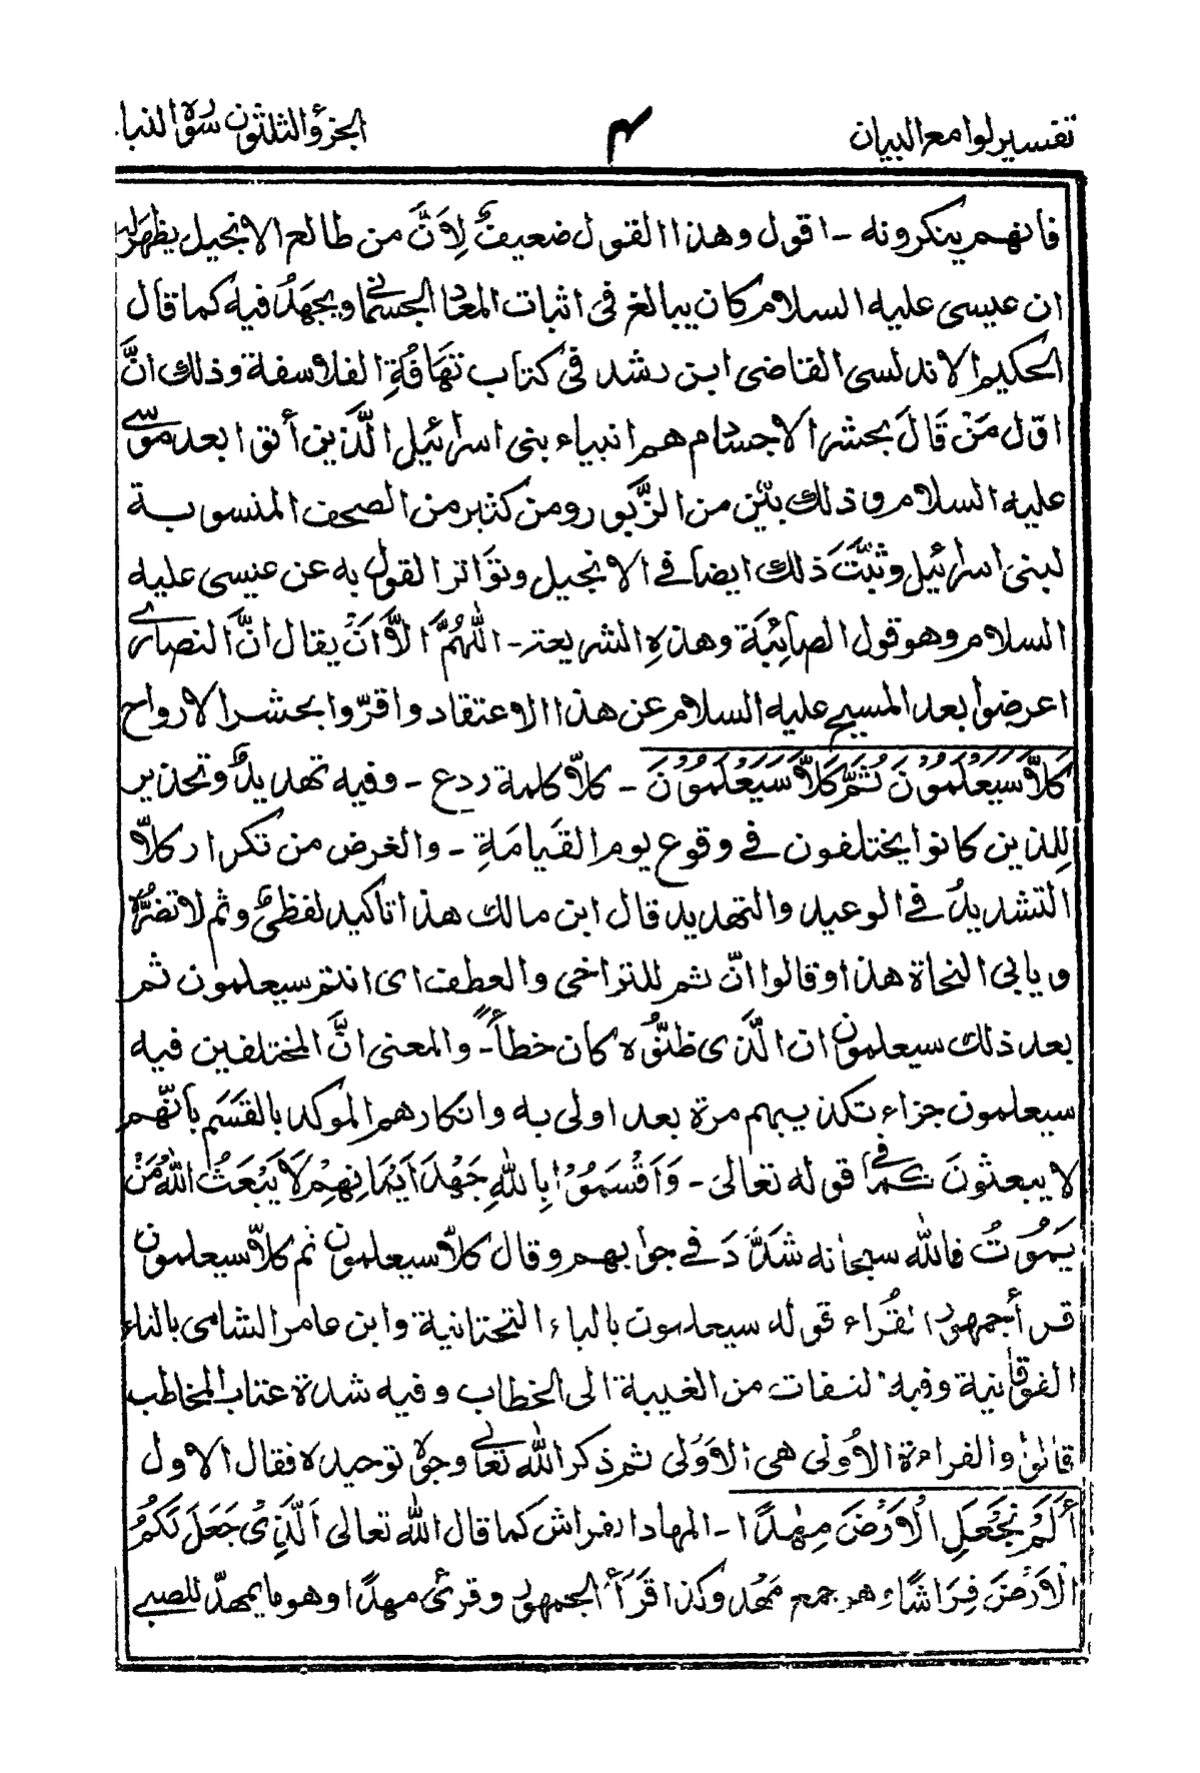 تفسير لوامع البيان
٣
الجزؤ الثلثون سورة النبا
فانهم ينكرونه - اقول وهذا القول ضعيفٌ لِاَنَّ من طالع الانجيل يظهر له
ان عيسى عليه السلام كان يبالغ فى اثبات المعاد الجسمانى ويجهَدُ فيه كما قال
الحكيم الاندلسى القاضى ابن رشد فى كتاب تَهَافُةِ الفلاسفة وذلك انَّ
اوّل مَنْ قَالَ بحشر الاجساد هم انبياء بنى اسرائيل الَّذين أتوا بعد موسٰى
عليه السلام و ذلك بيّن من الزَّبور ومن كثير من الصحف المنسوبة
لبنى اسرائيل وثبَتَ ذلك ايضاً فے الانجيل وتوَاتر القول به عن عيسى عليه
السلام وهو قول الصائِبَة وهذهِ الشريعة - اللهُمَّ الَّا اَنْ يقال انَّ النصارى
اعرضوا بعد المسيح عليه السلام عن هذا الاعتقاد واقرّوا بحشر الارواح
كَلَّا سَيَعْلَمُوْنَ ثُمَّ كَلَّا سَيَعْلَمُوْنَ - كلاّ كلمة ردع - وفيه تهديدٌ وتحذير
لِلذين كانوا يختلفون فے وقوع يوم القيَامَةِ - والغرض من تكرار كلاّ
التشديدُ فے الوعيد والتهديد قال ابن مالك هذا تاكيد لفظىٌ وثم لا تضرُّه
ويابى النحاة هذا وقالوا انّ ثم للتراخى والعطف اى انتم سيعلمون ثم
بعد ذلك سيعلمون ان الَّذى ظنُّوه كان خطأً - والمعنى انَّ المختلفين فيه
سيعلمون جزاء تكذيبهم مرة بعد اولى به وانكارهم الموكد بالقَسَم بأنّهم
لا يبعثونَ كما فے قوله تعالىٰ - وَاَقْسَمُوْا بِاللهِ جَهْدَ اَيْمَانِهِمْ لَا يَبْعَثُ اللهُ مَنْ
يَمُوْتُ فالله سبحانه شَدَّدَ فے جوابهم وقال كلاّ سيعلمون ثم كلاّ سيعلمون
قرأ جمهور القُراء قوله سيعلمون بالياء التحتانية وابن عامر الشامى بالتاء
الفوقانية وفيه التفات من الغيبة الى الخطاب وفيه شدة عتاب المخاطب
قالوا والقراءة الاُولى هى الاَوْلى ثم ذكر الله تعالىٰ وجوه توحيده فقال الاول
أَلَمْ نَجْعَلِ الْاَرْضَ مِهٰدًا - المهاد الفراش كما قال الله تعالى اَلَّذِىْ جَعَلَ لَكُمُ
الْاَرْضَ فِرَاشًا هو جمع مَهْد وكذا قَرَأَ الجمهور وقرئ مهدًا وهو ما يمهدّ للصبے